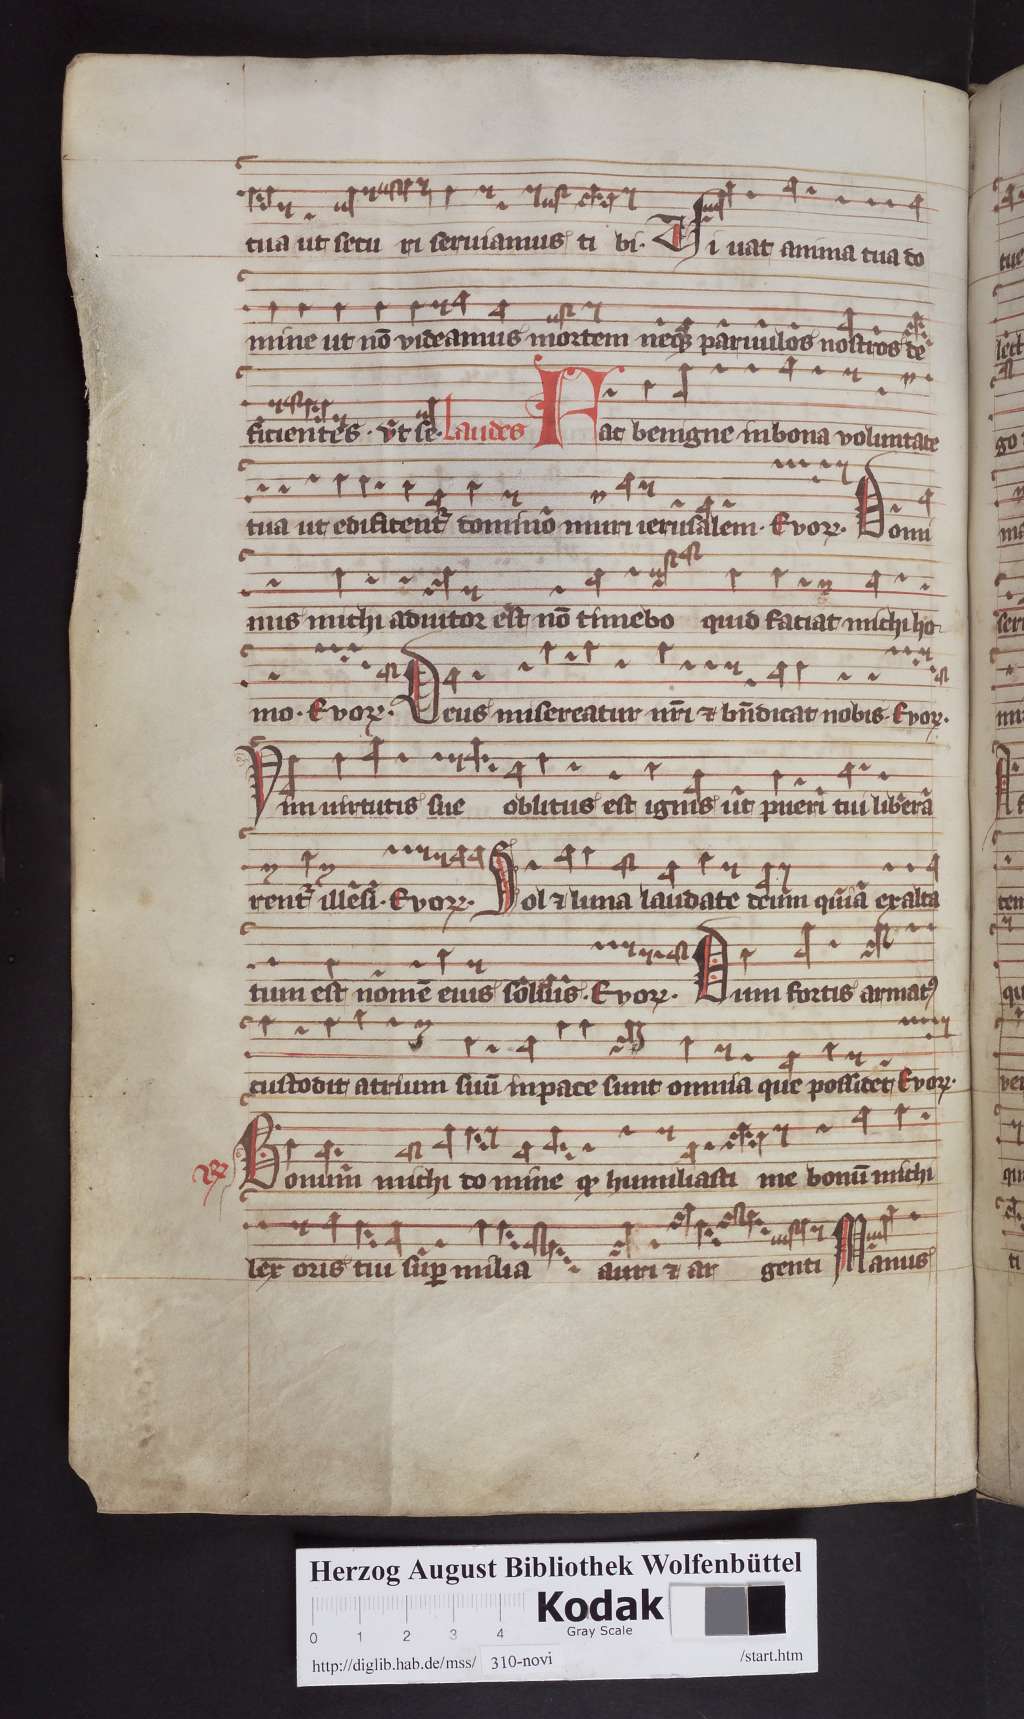 tua ut secu ri seruiamus ti bi. Ui uat anima tua do
mine ut nō videamus mortem neq3 paruulos nostros de
ficientes. Vt se. Laudes Fac benigne in bona voluntate
tua ut edificent᷑ domino muri ierusalem. Evoꝝ. Domi
nus michi adiutor est nō timebo quid faciat michi ho-
mo. Evoꝝ. Deus misereatur nr̄i ⁊ bn̄dicat nobis. Evoꝝ.
Vim uirtutis sue oblitus est ignis ut pueri tui libera
rent᷑ illesi. Evoꝝ. Sol ⁊ luna laudate deum quia exalta
tum est nomē eius solius. Evoꝝ. Dum fortis armatꝰ
custodit atrium suū in pace sunt omnia que possidet Evoꝝ.
Bonum michi do mine qꝛ humiliasti me bonū michi
lex oris tui sup milia auri ⁊ ar genti Manus
tue
lect
go
ser
ten
qu
ver
ti
Herzog August Bibliothek Wolfenbüttel
Kodak
Gray Scale
0 1 2 3 4
http://diglib.hab.de/mss/ 310-novi /start.htm